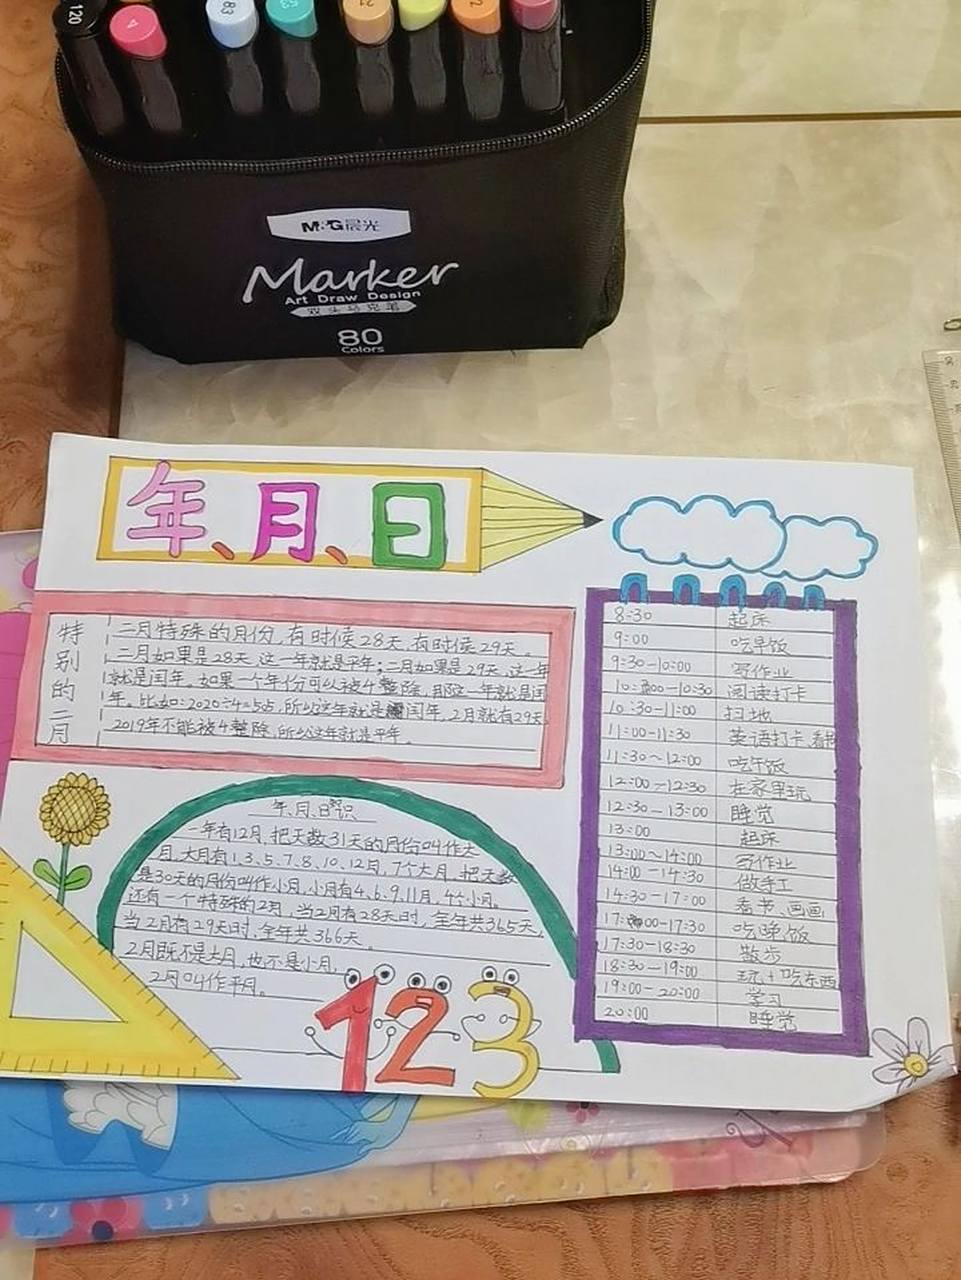 120
4
83
53
21
2
M&G晨光
Marker
Art Draw Design
双头马克笔
80
Colors
年、月、日
特别的二月
二月特殊的月份,有时候28天,有时候29天。
二月如果是28天,这一年就是平年;二月如果是29天,这一年
就是闰年。如果一个年份可以被4整除,那这一年就是闰
年。比如:2020÷4=505,所以这年就是闰年,2月就有29天
2019年不能被4整除,所以这年就是平年。
年、月、日知识
一年有12月,把天数31天的月份叫作大
月,大月有1、3、5、7、8、10、12月,7个大月,把天数
是30天的月份叫作小月,小月有4、6、9、11月,4个小月。
还有一个特殊的2月,当2月有28天时,全年共365天,
当2月有29天时,全年共366天。
2月既不是大月,也不是小月,
2月叫作平月。
1 2 3
8:30 起床
9:00 吃早饭
9:30-10:00 写作业
10:00-10:30 阅读打卡
10:30-11:00 扫地
11:00-11:30 英语打卡、看书
11:30~12:00 吃午饭
12:00-12:30 在家里玩
12:30-13:00 睡觉
13:00 起床
13:00~14:00 写作业
14:00-14:30 做手工
14:30-17:00 看书、画画
17:00-17:30 吃晚饭
17:30-18:30 散步
18:30-19:00 玩+吃东西
19:00-20:00 学习
20:00 睡觉